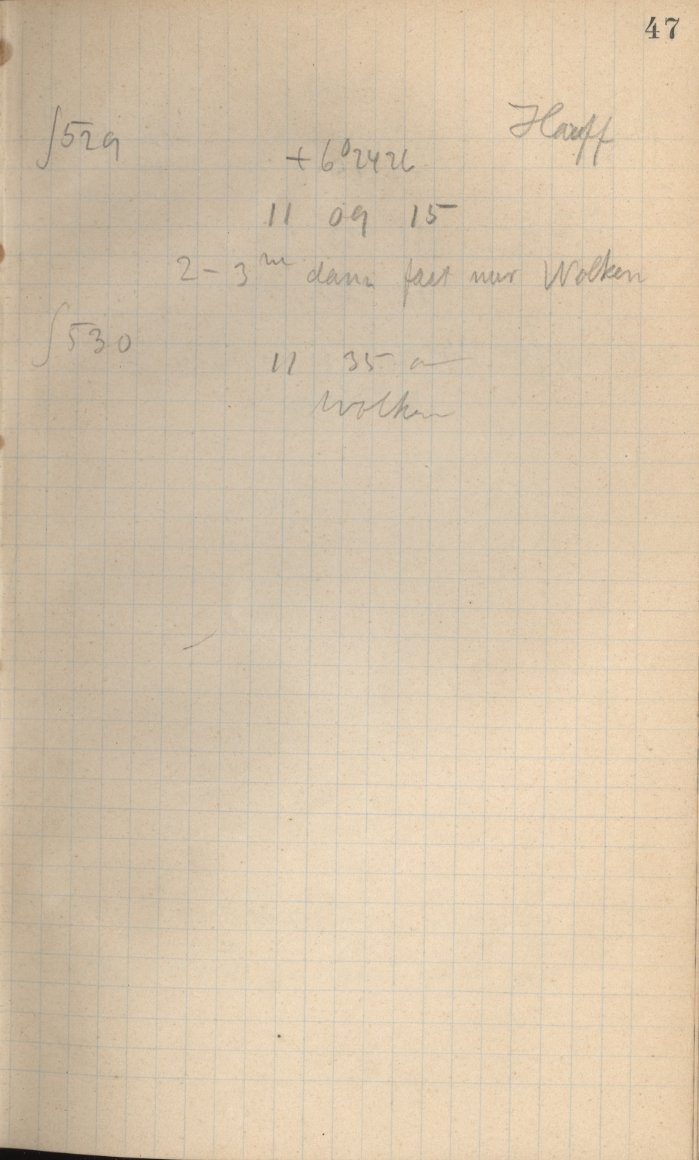 47
∫529
Hauff
+6⁰2426
11 09 15
2-3ᵐ dann fast nur Wolken
∫530
11 35
Wolken